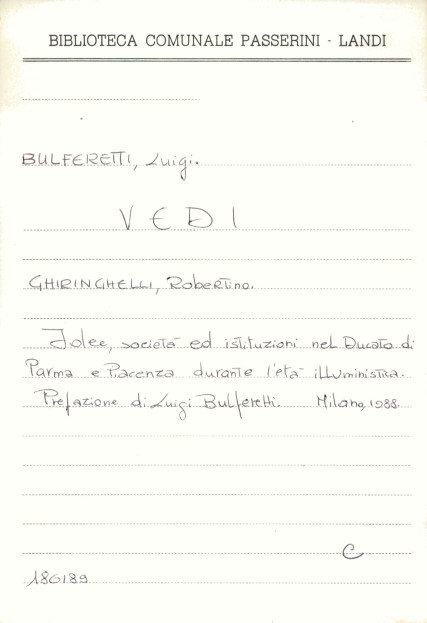 BIBLIOTECA COMUNALE PASSERINI - LANDI
BULFERETTI, Luigi.
VEDI
GHIRINGHELLI, Robertino.
Idee, società ed istituzioni nel Ducato di
Parma e Piacenza durante l'età illuministica.
Prefazione di Luigi Bulferetti. Milano, 1988.
C
186189